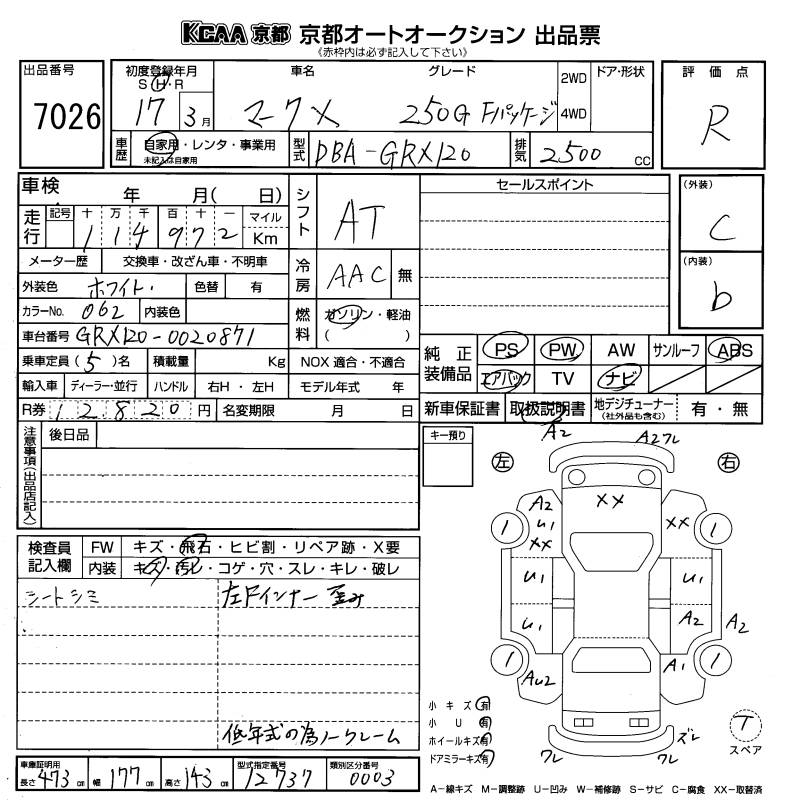 KCAA 京都 京都オートオークション 出品票
《赤枠内は必ず記入して下さい》
出品番号 初度登録年月 車名 グレード ドア・形状 評価点
S H・R 2WD
7026 17 3月 マークX 250G Fパッケージ 4WD R
車歴 自家用・レンタ・事業用 型式 DBA-GRX120 排気 2500 CC
未記入は自家用
車検 年 月( 日) シフト AT セールスポイント (外装)
走行 記号 十 万 千 百 十 一 マイル C
1 1 4 9 7 2 Km
メーター歴 交換車・改ざん車・不明車 冷房 AAC 無 (内装)
外装色 ホワイト 色替 有 b
カラーNo. 062 内装色 燃料 ガソリン・軽油
車台番号 GRX120-0020871 ( )
乗車定員(5)名 積載量 Kg NOX 適合・不適合 純正装備品 PS PW AW サンルーフ ABS
輸入車 ディーラー・並行 ハンドル 右H・左H モデル年式 年 エアバック TV ナビ
R券 12820円 名変期限 月 日 新車保証書 取扱説明書 地デジチューナー 有・無
(社外品も含む)
注意事項(出品店記入) 後日品 キー預り A2 A2ワレ
左 右
XX
A2 U1 XX XX
検査員記入欄 FW キズ・飛石・ヒビ割・リペア跡・X要
内装 キズ・汚レ・コゲ・穴・スレ・キレ・破レ
U1 U1
シートシミ 左Fインナー歪み
U1 A2 A2
AU2 A1
小キズ 有
小U 有
ホイールキズ 有
ドアミラーキズ 有
低年式の為ノークレーム
ワレ ワレ ズレ
T
スペア
車庫証明用 長さ 473cm 幅 177cm 高さ 143cm 型式指定番号 12737 類別区分番号 0003
A−線キズ M−調整跡 U−凹み W−補修跡 S−サビ C−腐食 XX−取替済